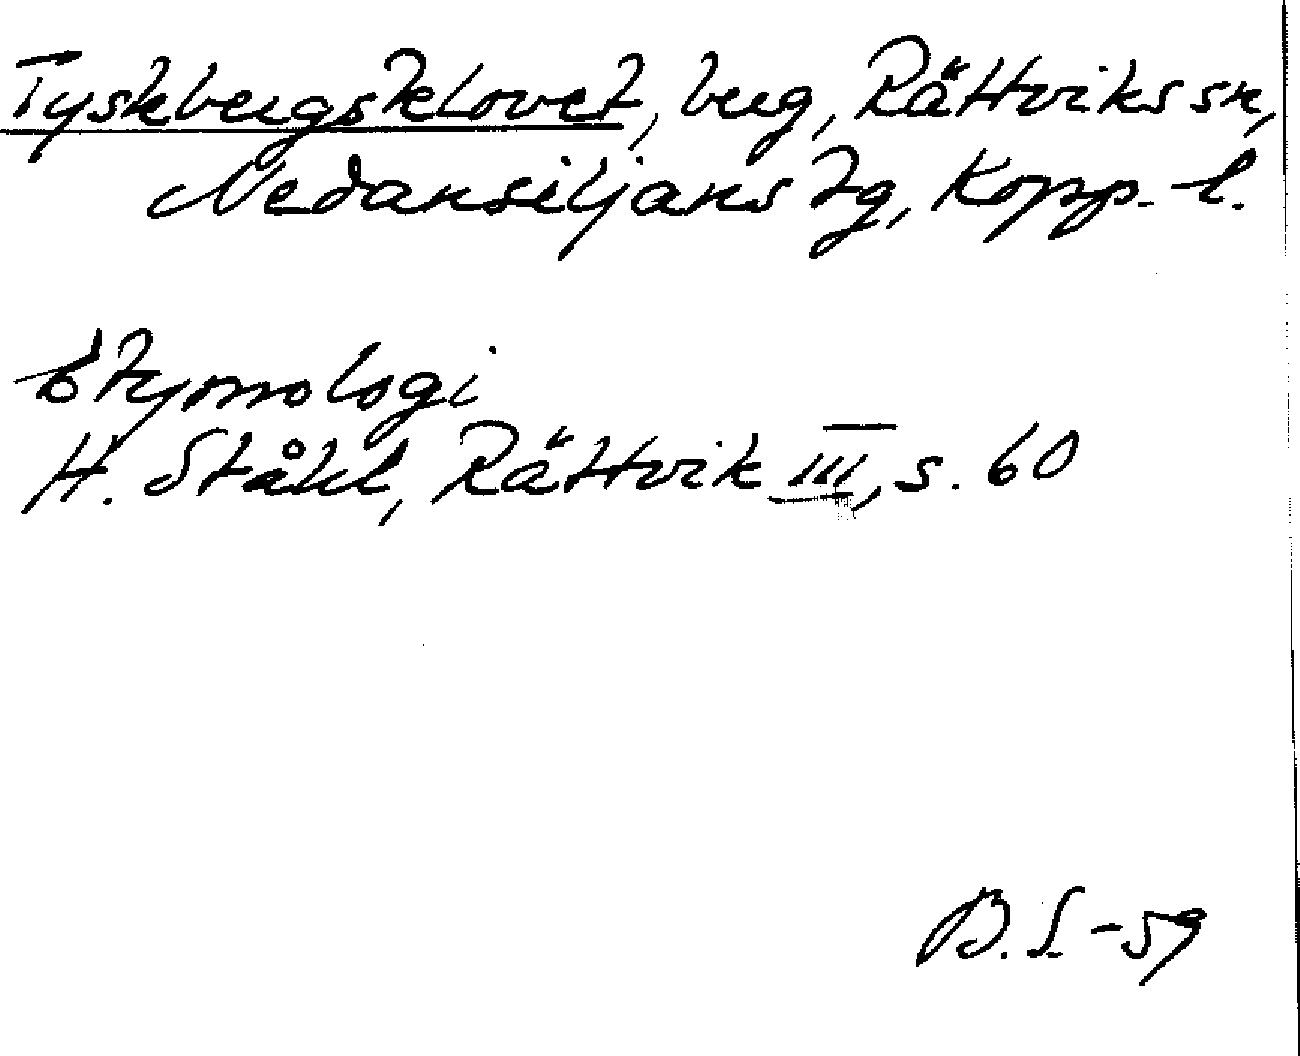 Tyskbergsklovet, berg, Rättviks sn,
Nedansiljans tg, Kopp. l.
Etymologi
H. Ståhl, Rättvik III, s. 60
B.S. -59